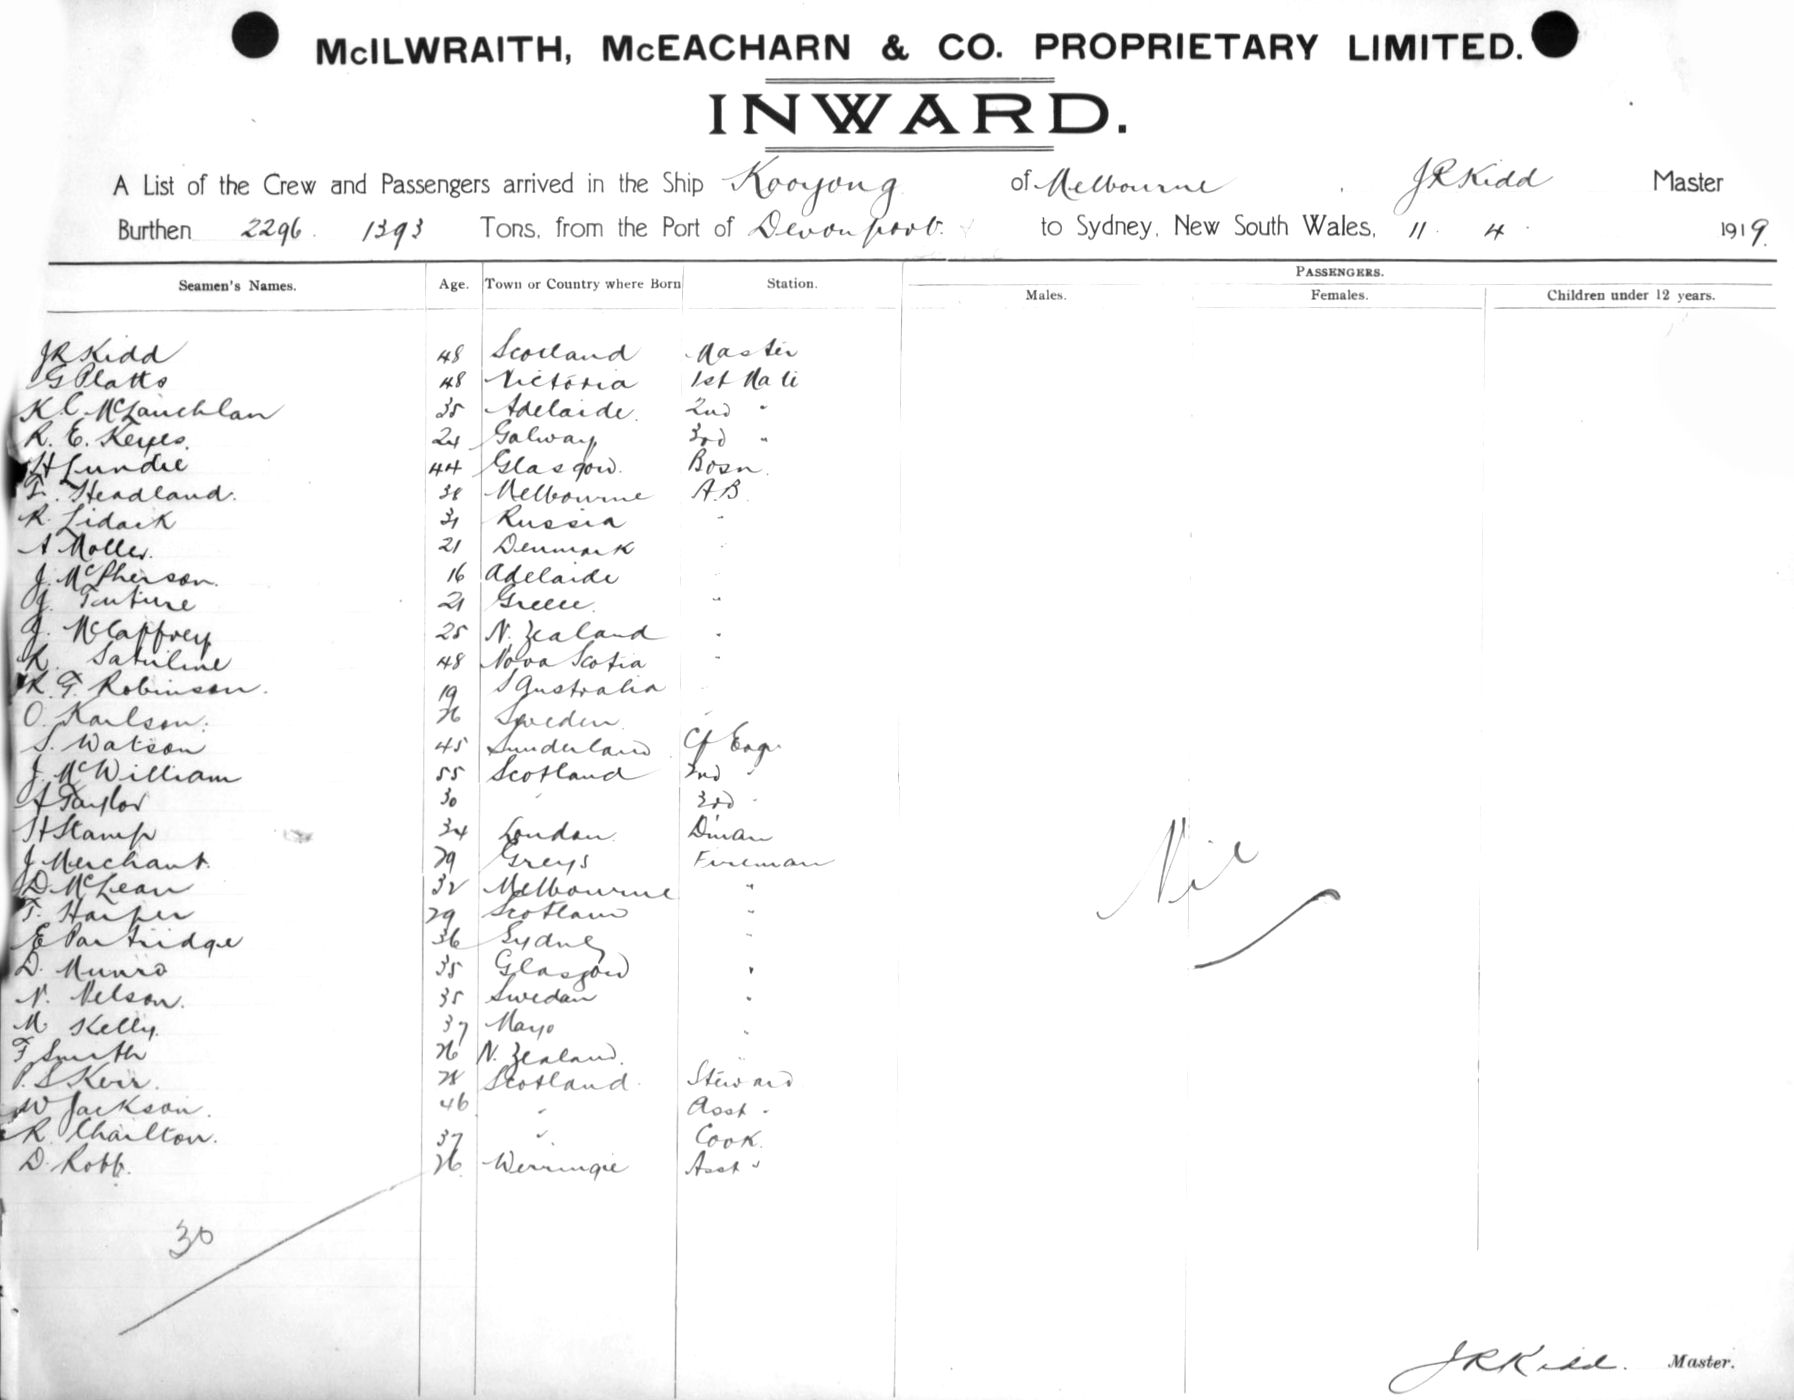 McILWRAITH, McEACHARN & CO. PROPRIETARY LIMITED.
INWARD.
A List of the Crew and Passengers arrived in the Ship Kooyong of Melbourne, J R Kidd Master
Burthen 2296. 1393 Tons, from the Port of Devonport. to Sydney, New South Wales, 11. 4. 1919.
Seamen's Names. Age. Town or Country where Born Station. PASSENGERS.
Males. Females. Children under 12 years.
J R Kidd 48 Scotland Master
G Platts 48 Victoria 1st Mate
K. C. McLauchlan 35 Adelaide. 2nd "
R. E. Keyes. 24 Galway 3rd "
H Lundie 44 Glasgow. Bosn.
Headland. 38 Melbourne A.B.
R. Lidack 31 Russia "
A Moller. 21 Denmark "
J. McPherson. 16 Adelaide "
J. 21 Greece. "
J. McCaffrey 25 N. Zealand "
48 Nova Scotia "
R. F. Robinson. 19 S Australia "
O. Karlson. 26 Sweden "
S. Watson 45 Sunderland Cf Engr.
J. McWilliam 55 Scotland 2nd "
A Taylor 30 " 3rd "
H Stamp 34 London. D'man
J Merchant. 29 Greys Fireman
D. McLean 32 Melbourne "
T. Harper 29 Scotland "
E Partridge 36 Sydney "
D. Munro 35 Glasgow "
N. Nelson. 35 Swedan "
M Kelly. 37 Mayo "
F Smith 26 N. Zealand. "
P. S Kerr. 28 Scotland. Steward
W Jackson. 46 " Asst "
R. Charlton. 37 " Cook.
D. Robb. 26 Asst "
Nil
30
J R Kidd. Master.